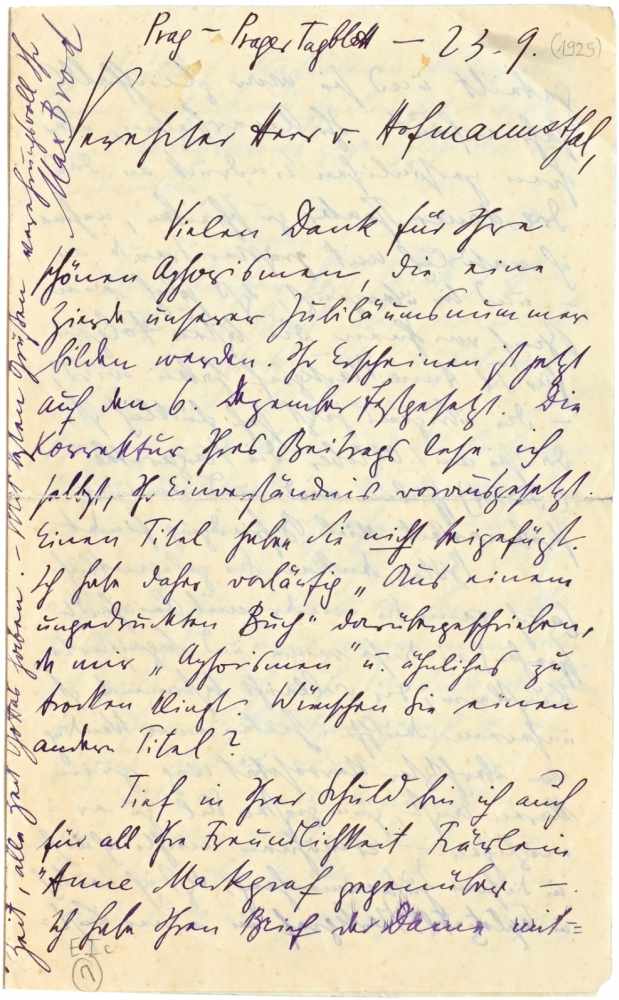 Prag – Prager Tagblatt – 23. 9. (1925)
Verehrter Herr v. Hofmannsthal,
Vielen Dank für Ihre
schönen Aphorismen, die eine
Zierde unserer Jubiläumsnummer
bilden werden. Ihr Erscheinen ist jetzt
auf den 6. Dezember festgesetzt. Die
Korrektur Ihres Beitrags lese ich
selbst, Ihr Einverständnis vorausgesetzt.
Einen Titel haben Sie nicht beigefügt.
Ich habe daher vorläufig „Aus einem
ungedruckten Buch“ darübergeschrieben,
da mir „Aphorismen“ u. ähnliches zu
trocken klingt. Wünschen Sie einen
andern Titel?
Tief in Ihrer Schuld bin ich auch
für all Ihre Freundlichkeit Fräulein
Anne Markgraf gegenüber –.
Ich habe Ihren Brief der Dame mit=
Zeit, alle Zeit Gottes haben. – Mit besten Grüßen verehrungsvoll Ihr
Max Brod